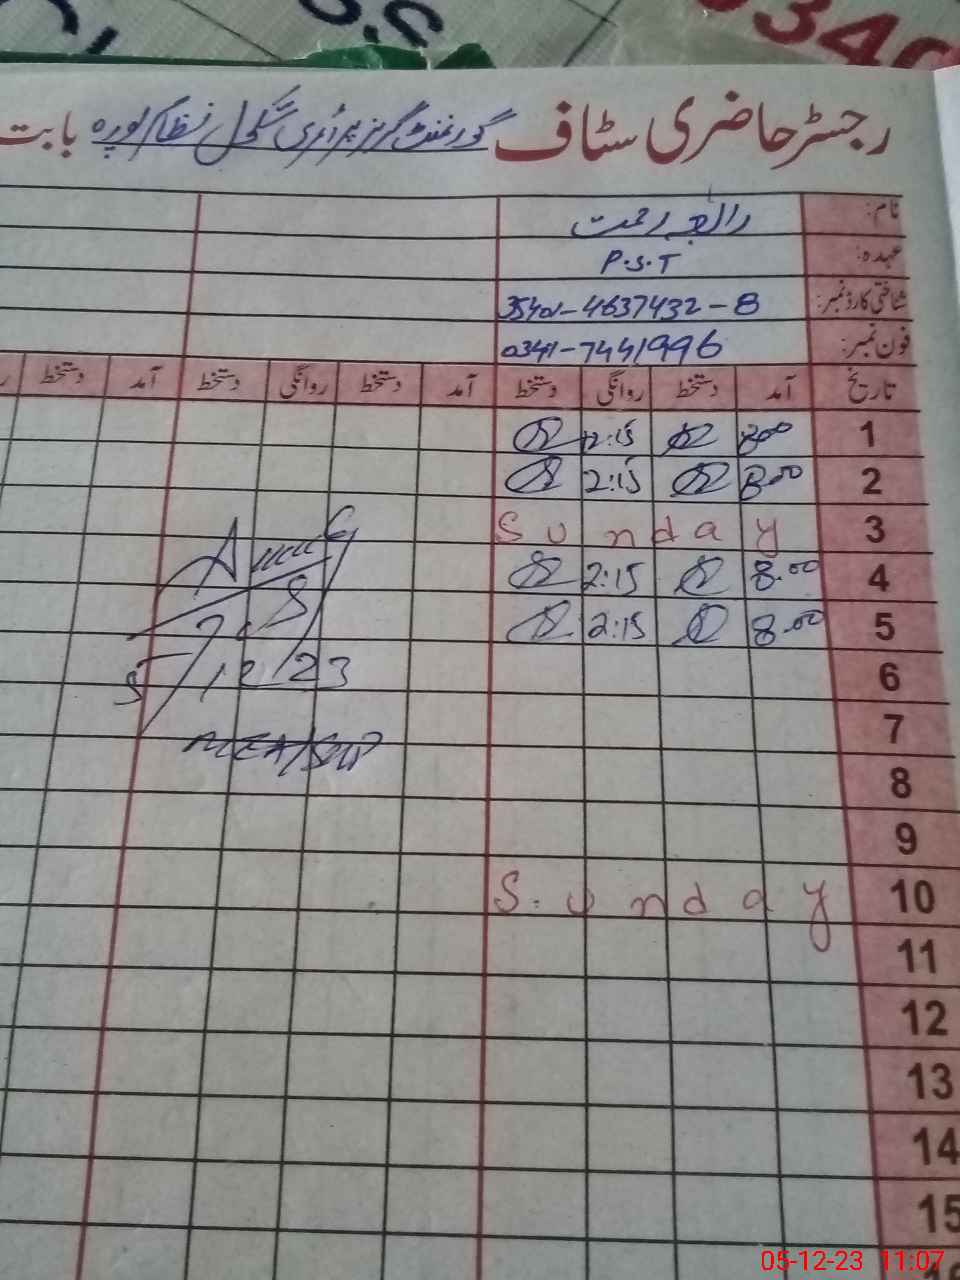 0340
رجسٹر حاضری سٹاف گورنمنٹ گرلز پرائمری سکول نظام پورہ بابت
نام: رابعہ رحمت
عہدہ: P.S.T
شناختی کارڈ نمبر: 35401-4637432-8
فون نمبر: 0341-7441996
تاریخ آمد دستخط روانگی دستخط آمد دستخط روانگی دستخط آمد دستخط
1 8:00 2:15
2 8:00 2:15
3 Sunday
4 8:00 2:15
5 8:00 2:15
6
7
8
9
10 Sunday
11
12
13
14
15
16
5/12/23
MEA/SKP
05-12-23 11:07